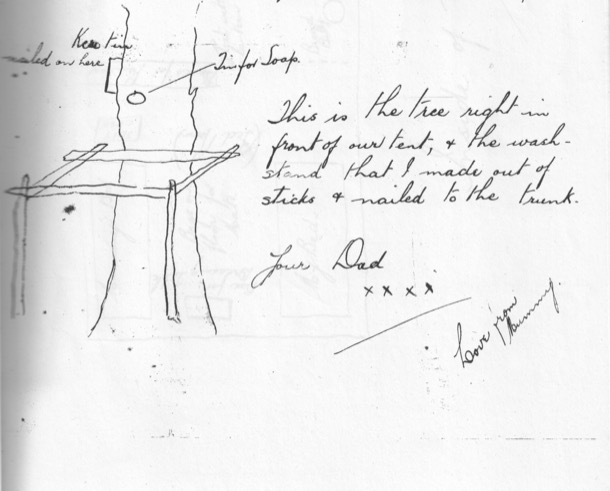 Kero tin
nailed on here
Tin for Soap.
This is the tree right in
front of our tent, & the wash-
stand that I made out of
sticks & nailed to the trunk.
Your Dad
x x x x
Love from
Mummy.